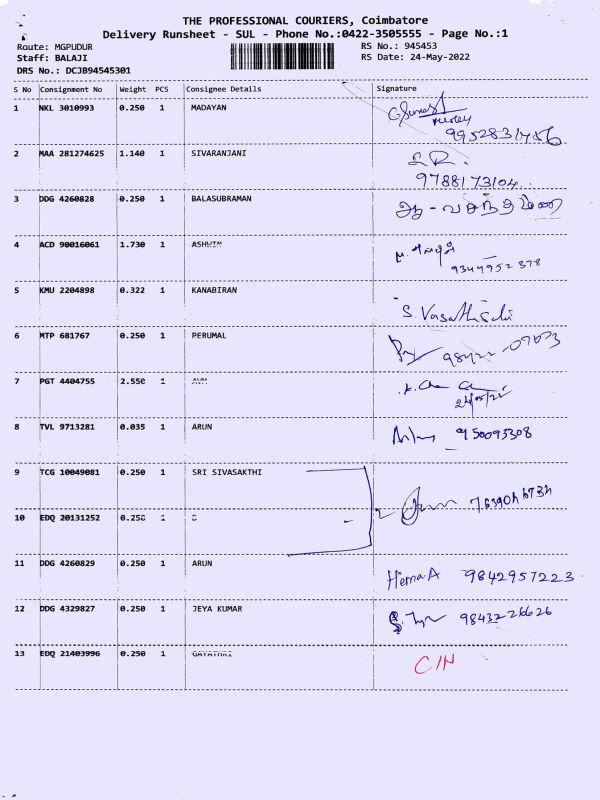 THE PROFESSIONAL COURIERS, Coimbatore
Delivery Runsheet - SUL - Phone No.:0422-3505555 - Page No.:1
Route: MGPUDUR RS No.: 945453
Staff: BALAJI RS Date: 24-May-2022
DRS No.: DCJB94545301
S No Consignment No Weight PCS Consignee Details Signature
1 NKL 3010993 0.250 1 MADAYAN
2 MAA 281274625 1.140 1 SIVARANJANI
9788173104
3 DDG 4260828 0.250 1 BALASUBRAMAN
4 ACD 90016061 1.730 1 ASHWIN
9344952378
5 KMU 2204898 0.322 1 KANABIRAN
6 MTP 681767 0.250 1 PERUMAL
7 PGT 4404755 2.550 1
24/05/22
8 TVL 9713281 0.035 1 ARUN
950093308
9 TCG 10049081 0.250 1 SRI SIVASAKTHI
10 EDQ 20131252 0.250
11 DDG 4260829 0.250 1 ARUN
Hema A 9842957223
12 DDG 4329827 0.250 1 JEYA KUMAR
9843226626
13 EDQ 21403996 0.250 1 GAYATHRI
C/N